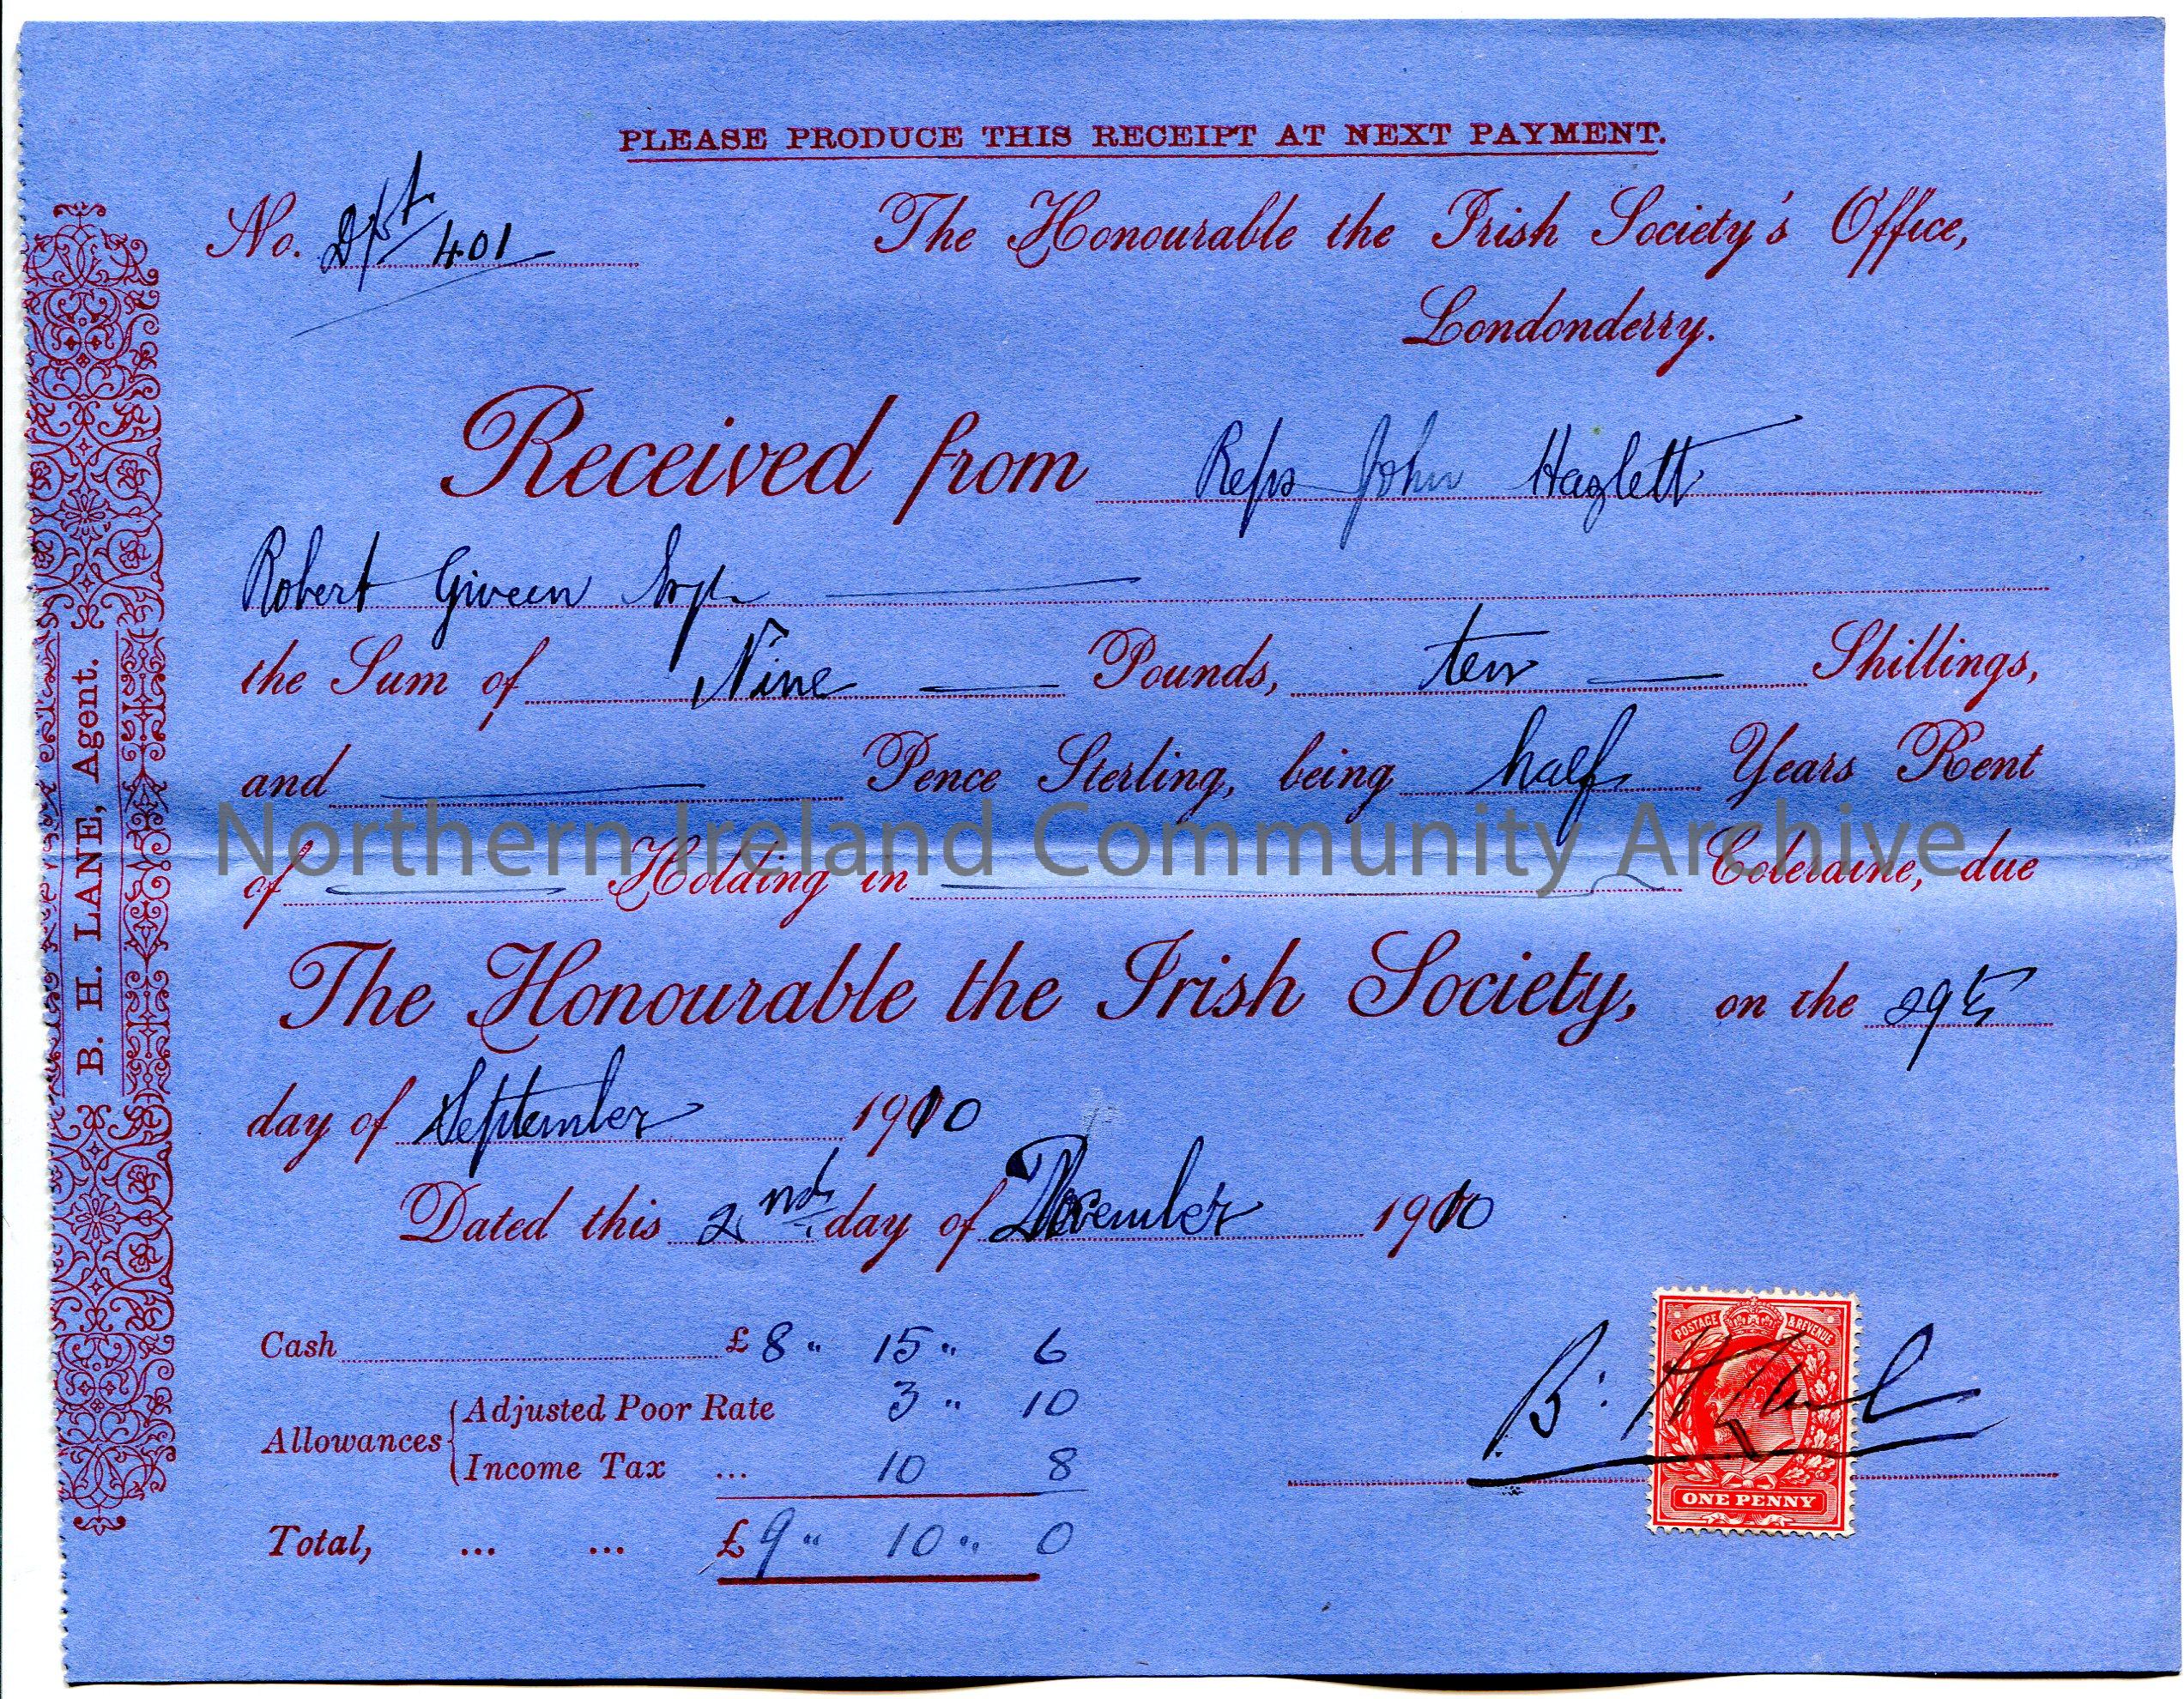 PLEASE PRODUCE THIS RECEIPT AT NEXT PAYMENT.
No. 401
The Honourable the Irish Society's Office,
Londonderry.
Received from Reps John Hazlett
Robert Given
the Sum of Nine Pounds, ten Shillings,
and Pence Sterling, being half Years Rent
of Holding in Coleraine, due
The Honourable the Irish Society, on the 29th
day of September 1910
Dated this 2nd day of November 1910
Cash £ 8 " 15 " 6
Allowances { Adjusted Poor Rate 3 " 10
Income Tax ... 10 8
Total, ... ... £ 9 " 10 " 0
B. H. Lane
POSTAGE & REVENUE
ONE PENNY
B. H. LANE, Agent.
Northern Ireland Community Archive